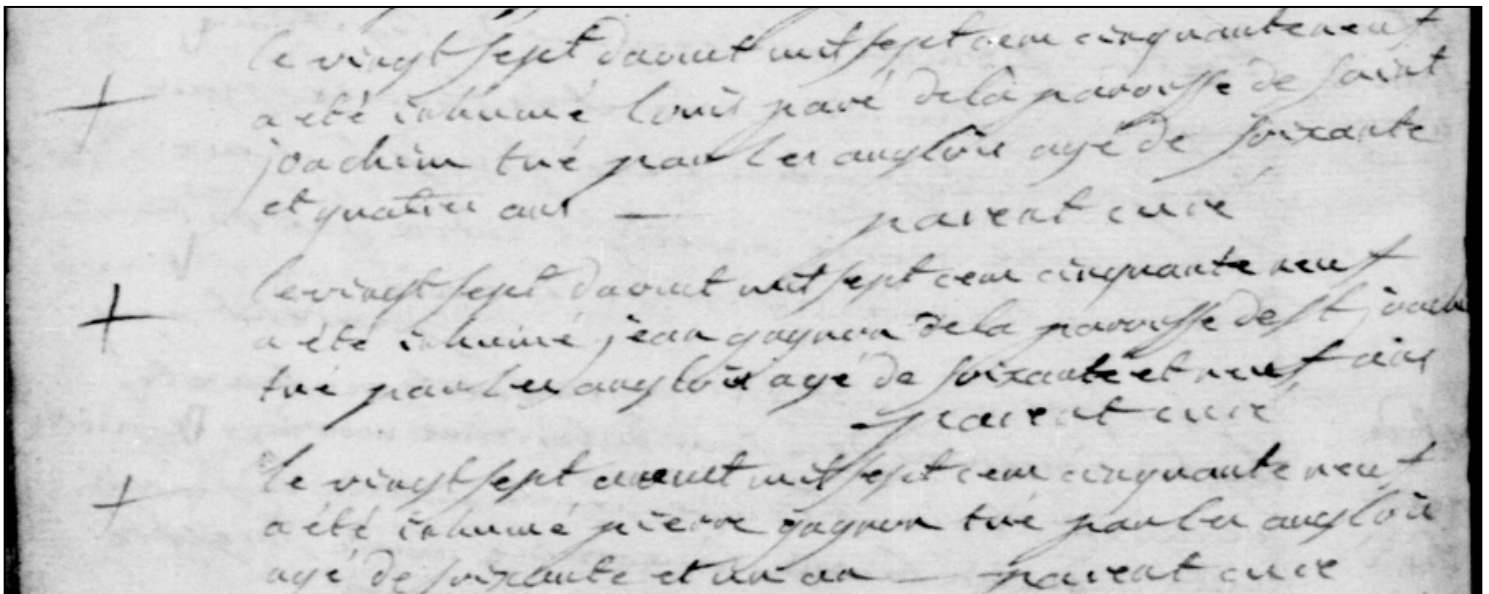 le vingt sept daoust mil sept cem cinquante neuf
a été inhumé louis paré de la paroisse de saint
joachim tué par les anglois agé de soixante
et quatre ans — parent curé
le vingt sept daoust mil sept cem cinquante neuf
a été inhumé jean gagnon de la paroisse de st joach
tué par les anglois agé de soixante et neuf ans
parent curé
le vingt sept aoust mil sept cem cinquante neuf
a été inhumé pierre gagnon tué par les anglois
agé de soixante et un an — parent curé